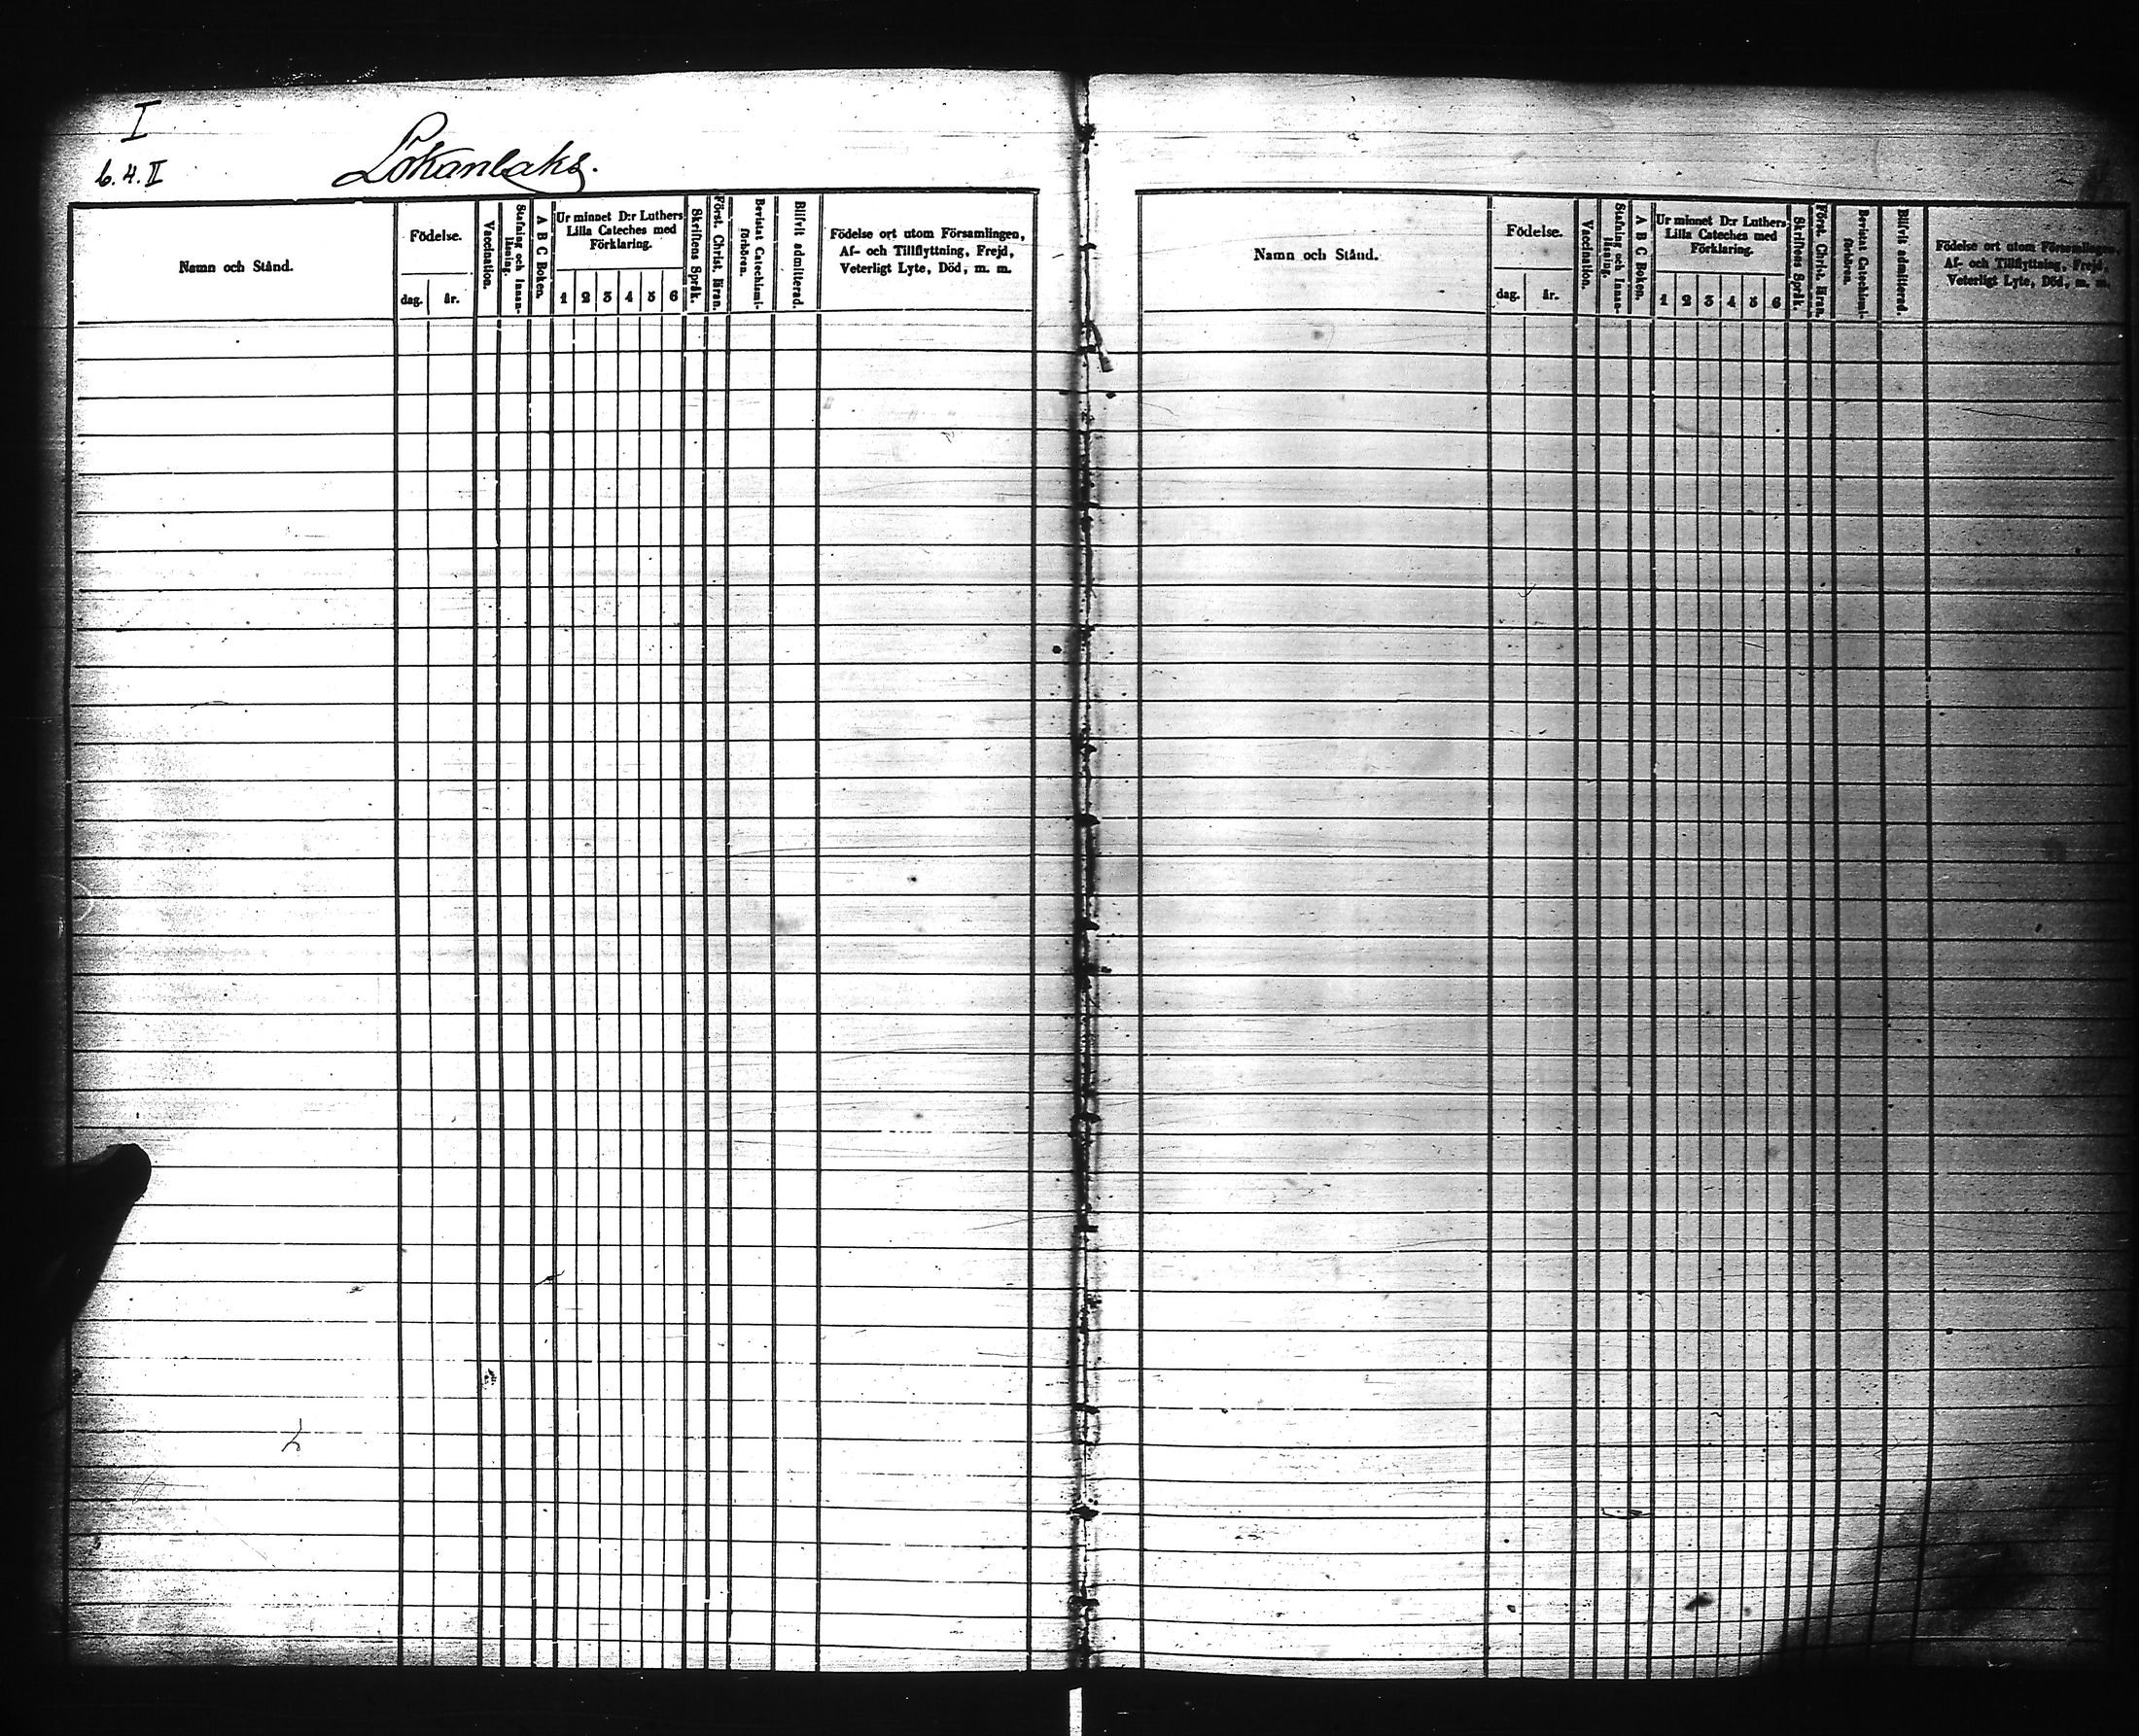 I
b.4.II
Lokanlaks.
Namn och Stånd.
Födelse.
dag.
år.
Vaccination.
Stafning och Innan-
läsning.
A B C Boken.
Ur minnet D:r Luthers
Lilla Cateches med
Förklaring.
1 2 3 4 5 6
Skriftens Språk.
Först. Christ. läran.
Bevistat Catechismi-
förhören.
Blifvit admitterad.
Födelse ort utom Församlingen,
Af- och Tillflyttning, Frejd,
Veterligt Lyte, Död, m. m.
Namn och Stånd.
Födelse.
dag.
år.
Vaccination.
Stafning och Innan-
läsning.
A B C Boken.
Ur minnet D:r Luthers
Lilla Cateches med
Förklaring.
1 2 3 4 5 6
Skriftens Språk.
Först. Christ. läran.
Bevistat Catechismi-
förhören.
Blifvit admitterad.
Födelse ort utom Församlingen,
Af- och Tillflyttning, Frejd,
Veterligt Lyte, Död, m. m.